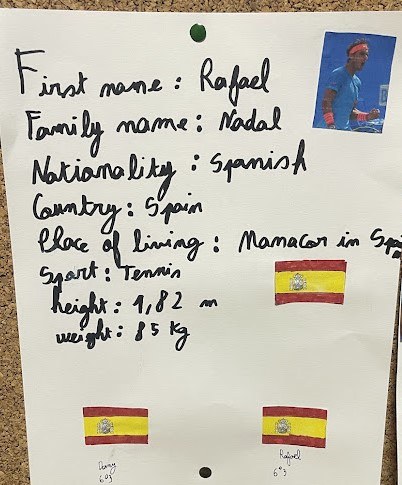 First name : Rafael
Family name : Nadal
Nationality : Spanish
Country : Spain
Place of living : Manacor in Spai
Sport : Tennis
height : 1,82 m
weight : 85 kg
Rafael